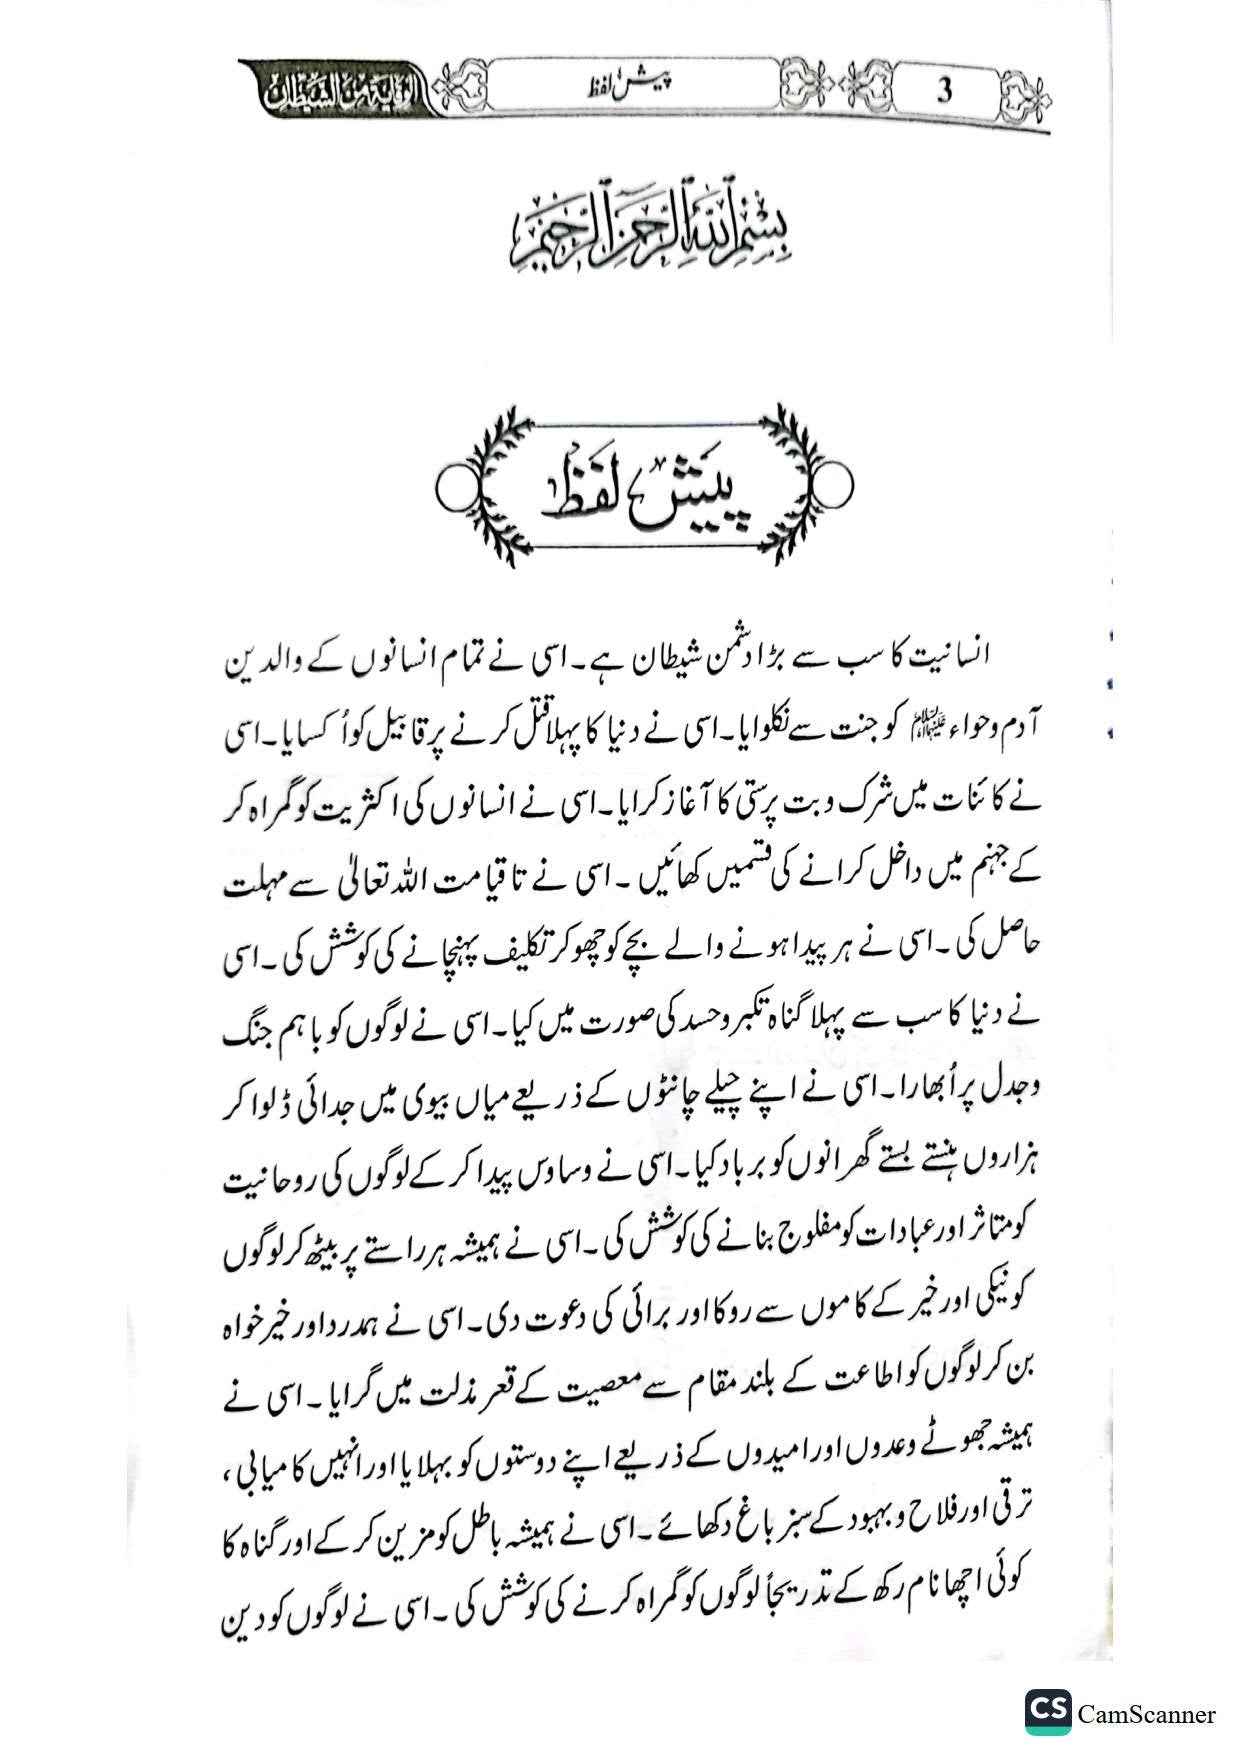 3
پیش لفظ
الوقایة من الشیطان
بِسْمِ اللهِ الرَّحْمٰنِ الرَّحِیْمِ
پیش لفظ
انسانیت کا سب سے بڑا دشمن شیطان ہے۔ اسی نے تمام انسانوں کے والدین
آدم و حواء علیہما السلام کو جنت سے نکلوایا۔ اسی نے دنیا کا پہلا قتل کرنے پر قابیل کو اُکسایا۔ اسی
نے کائنات میں شرک و بت پرستی کا آغاز کرایا۔ اسی نے انسانوں کی اکثریت کو گمراہ کر
کے جہنم میں داخل کرانے کی قسمیں کھائیں۔ اسی نے تا قیامت اللہ تعالیٰ سے مہلت
حاصل کی۔ اسی نے ہر پیدا ہونے والے بچے کو چھو کر تکلیف پہنچانے کی کوشش کی۔ اسی
نے دنیا کا سب سے پہلا گناہ تکبر و حسد کی صورت میں کیا۔ اسی نے لوگوں کو باہم جنگ
و جدل پر اُبھارا۔ اسی نے اپنے چیلے چانٹوں کے ذریعے میاں بیوی میں جدائی ڈلوا کر
ہزاروں ہنستے بستے گھرانوں کو برباد کیا۔ اسی نے وساوس پیدا کر کے لوگوں کی روحانیت
کو متاثر اور عبادات کو مفلوج بنانے کی کوشش کی۔ اسی نے ہمیشہ ہر راستے پر بیٹھ کر لوگوں
کو نیکی اور خیر کے کاموں سے روکا اور برائی کی دعوت دی۔ اسی نے ہمدرد اور خیر خواہ
بن کر لوگوں کو اطاعت کے بلند مقام سے معصیت کے قعر مذلت میں گرایا۔ اسی نے
ہمیشہ جھوٹے وعدوں اور امیدوں کے ذریعے اپنے دوستوں کو بہلایا اور انہیں کامیابی،
ترقی اور فلاح و بہبود کے سبز باغ دکھائے۔ اسی نے ہمیشہ باطل کو مزین کر کے اور گناہ کا
کوئی اچھا نام رکھ کے تدریجاً لوگوں کو گمراہ کرنے کی کوشش کی۔ اسی نے لوگوں کو دین
CS CamScanner